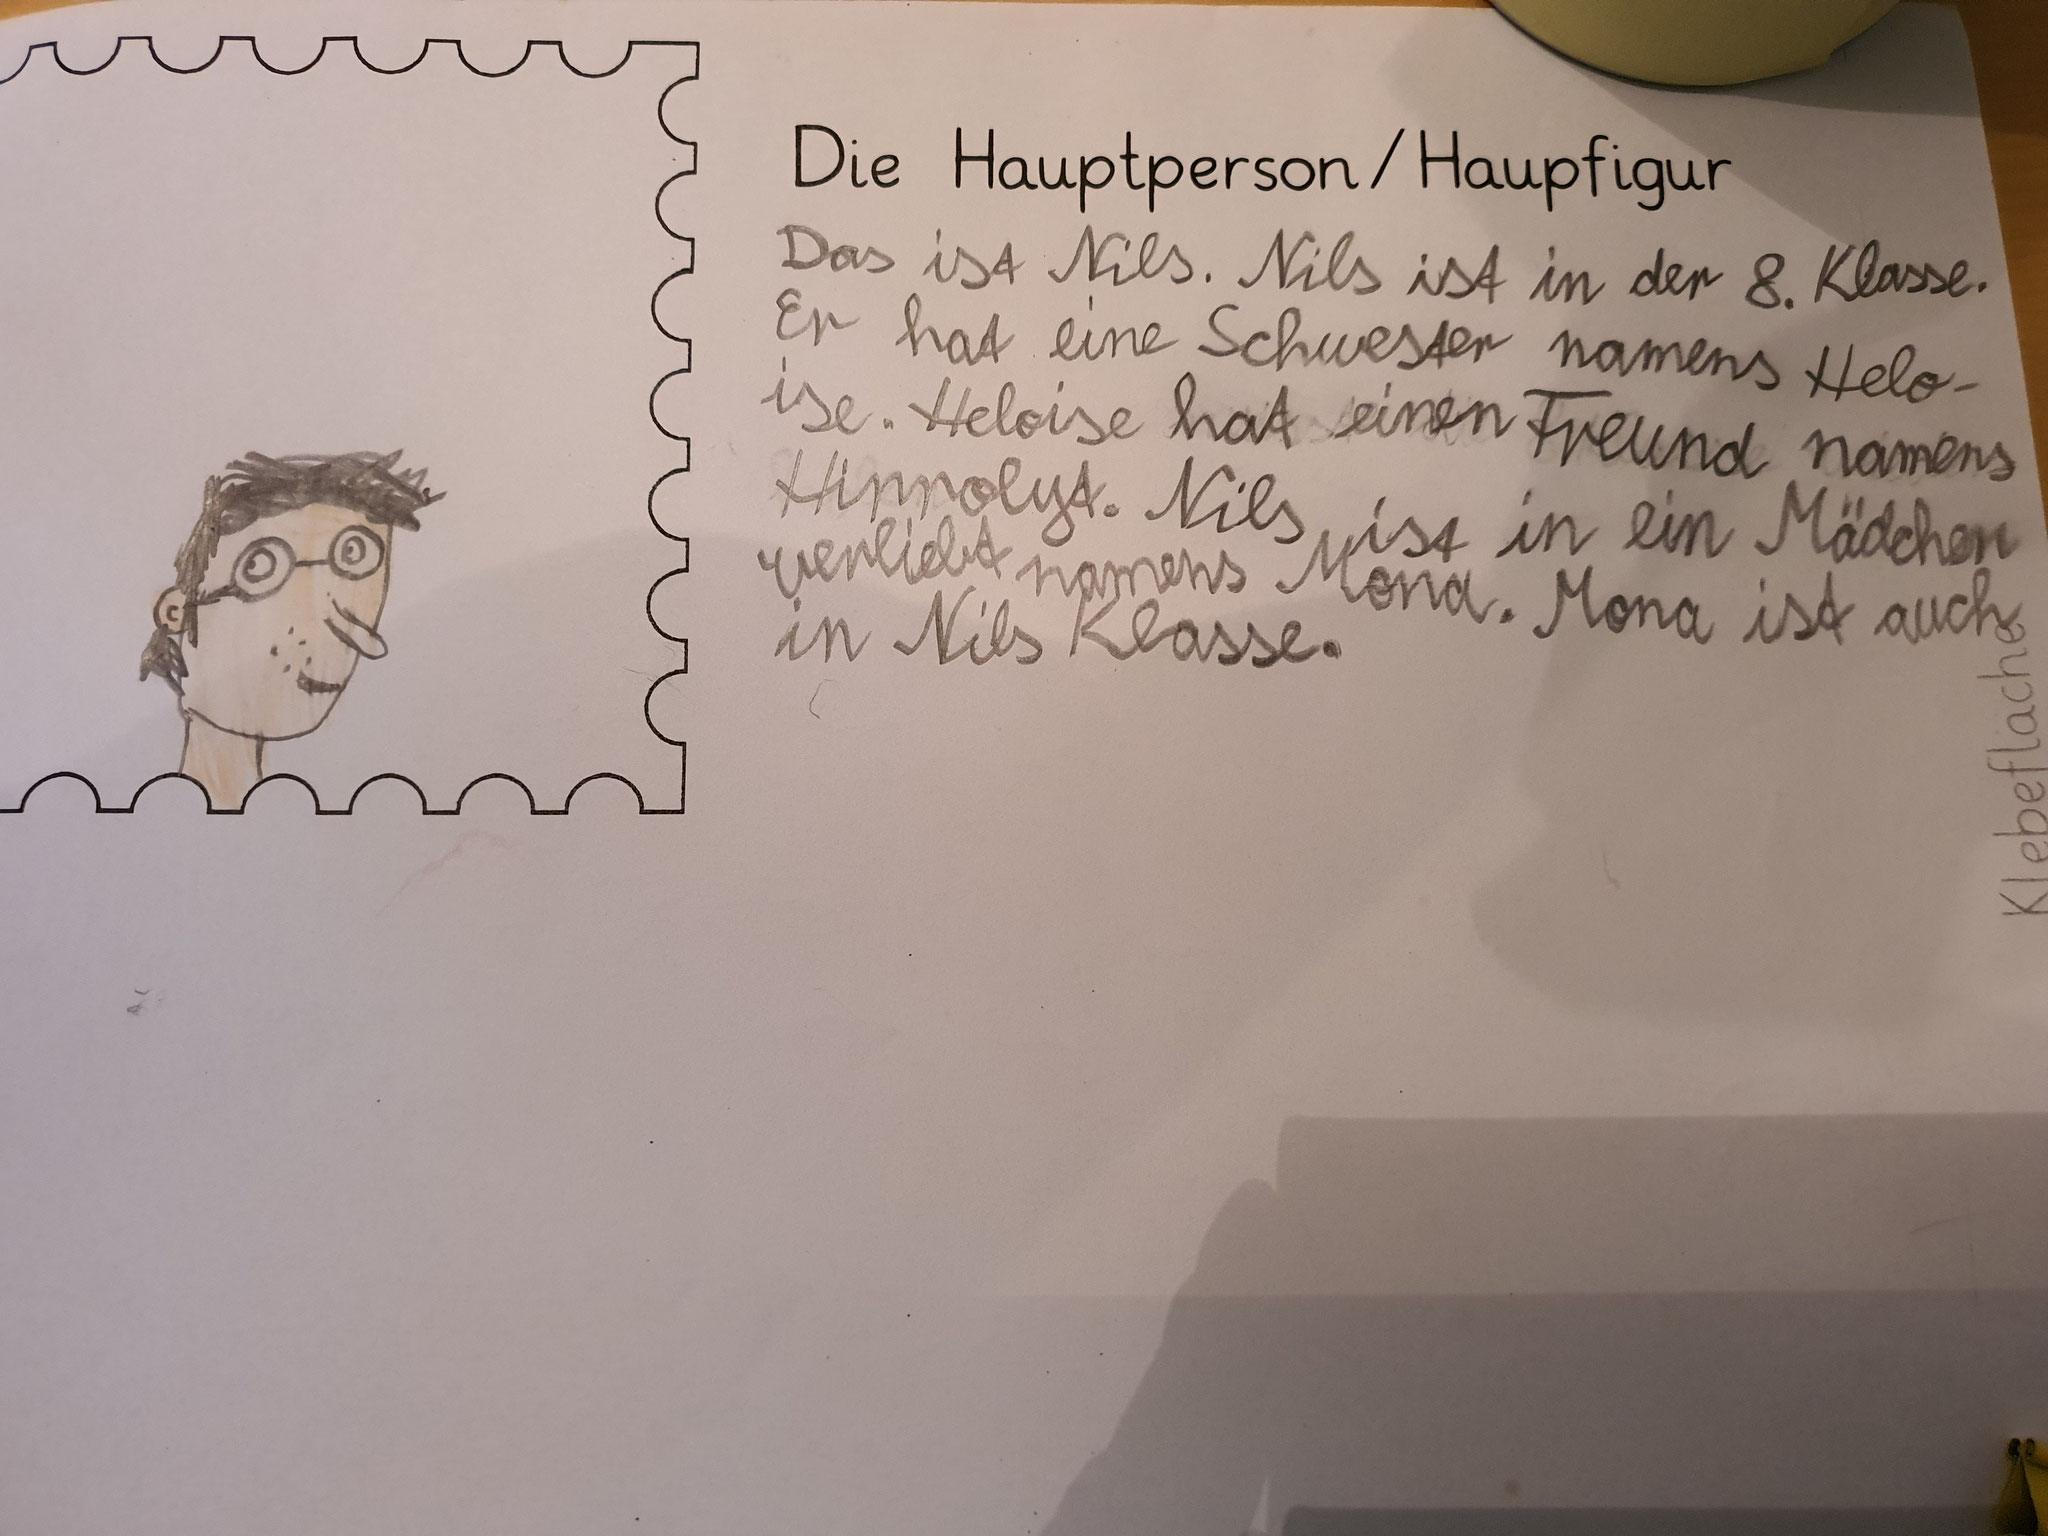 Die Hauptperson/Haupfigur
Das ist Nils. Nils ist in der 8. Klasse.
Er hat eine Schwester namens Helo-
ise. Heloise hat einen Freund namens
Hippolyt. Nils ist in ein Mädchen
verliebt namens Mona. Mona ist auch
in Nils Klasse.
Klebefläche